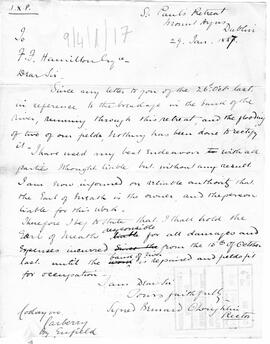 J.X.P.
St. Pauls Retreat
Mount Argus
Dublin
29. Jan. 1887.
9/4/1/17
To
F. F. Hamilton Esqre
Dear Sir
Since my letter to you of the 26th Oct. last,
in reference to the breakage in the bank of the
river, running through this retreat - and the flooding
of two of our fields nothing has been done to rectify
it. I have used my best endeavors with all
parties thought liable but without any result
I am now informed on reliable authority that
the Earl of Meath is the owner, and the person
liable for this work.
Therefore I beg to state that I shall hold the
Earl of Meath responsible for all damages and
Expenses incurred from the 16th of October
last until the bank of river is repaired and fields fit
for occupation -
I am Dear Sir
Yours faithfully
Signed Bernard
Rector
Carberry
Enfield